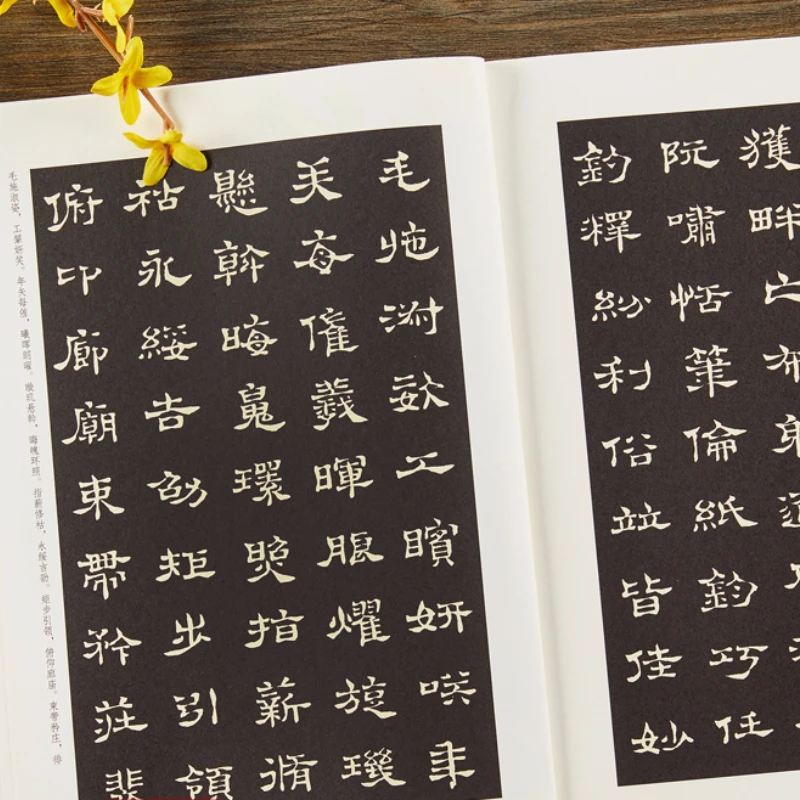 獲畔亡布射
阮嘯恬筆倫紙鈞巧任
釣釋紛利俗竝皆佳妙
毛施淑姿工矉妍咲年
矢每催羲暉朗曜旋璣
懸斡晦魄環照指薪脩
祜永綏吉劭矩步引領
俯仰廊廟束帶矜莊裴
毛施淑姿，工颦妍笑。年矢每催，曦晖朗曜。璇玑悬斡，晦魄环照。指薪修祜，永绥吉劭。矩步引领，俯仰廊庙。束带矜庄，徘